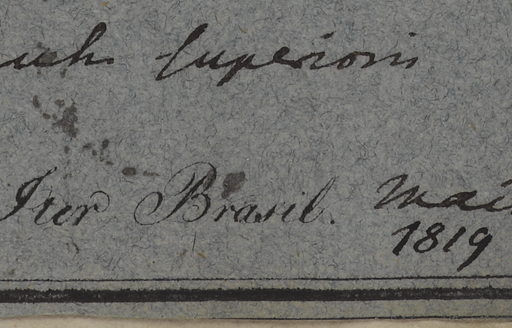 superioris
Iter Brasil. Maii
1819